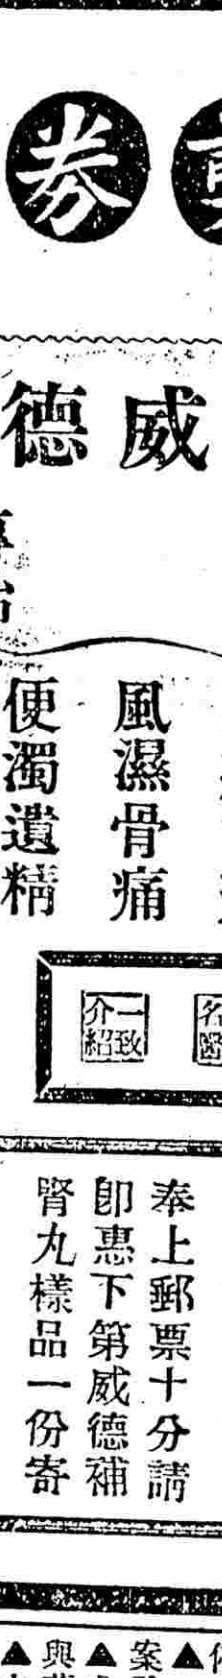 券
威德
風濕骨痛
便濁遺精
名醫
一致介紹
奉上郵票十分請
卽惠下第威德補
腎丸樣品一份寄
▲案
▲與